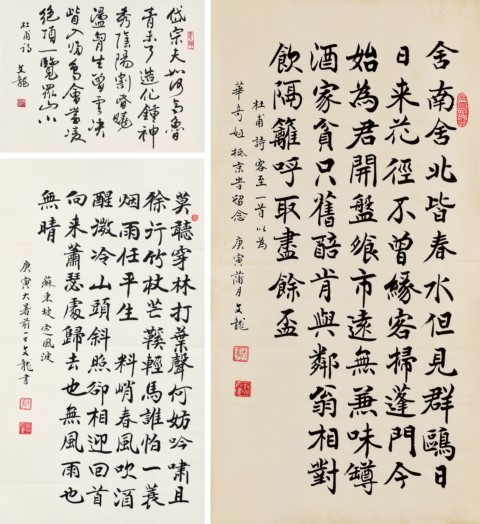 岱宗夫如何齊魯
青未了造化鍾神
秀陰陽割昏曉
盪胸生曾雲決
眥入歸鳥會當凌
絕頂一覽衆山小
杜甫詩 文龍
莫聽穿林打葉聲何妨吟嘯且
徐行竹杖芒鞵輕馬誰怕一蓑
烟雨任平生 料峭春風吹酒
醒微冷山頭斜照卻相迎回首
向來蕭瑟處歸去也無風雨也
無晴
蘇東坡定風波
庚寅大暑前日文龍書
舍南舍北皆春水但見群鷗日
日來花徑不曾緣客掃蓬門今
始為君開盤飧市遠無兼味罇
酒家貧只舊醅肯與鄰翁相對
飲隔籬呼取盡餘盃
杜甫詩客至一首以為
華奇姐抵京 留念 庚寅蒲月文龍